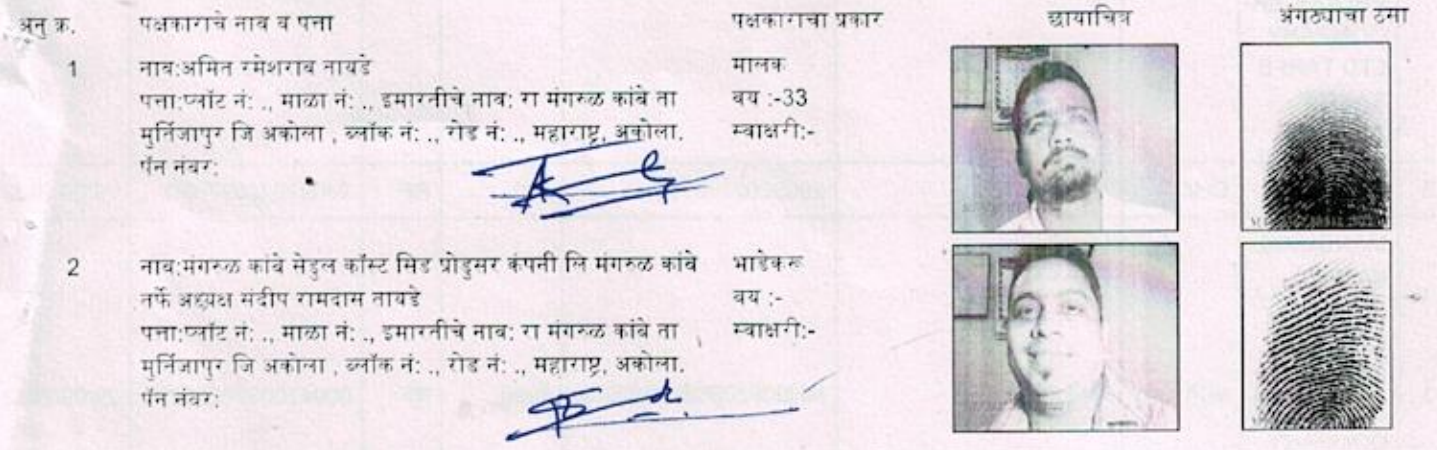 अनु क्र. पक्षकाराचे नाव व पत्ता पक्षकाराचा प्रकार छायाचित्र अंगठ्याचा ठसा
1 नाव:अमित रमेशराव तायडे मालक
पत्ता:प्लॉट नं: ., माळा नं: ., इमारतीचे नाव: रा मंगरुळ कांबे ता वय :-33
मुर्तिजापुर जि अकोला , ब्लॉक नं: ., रोड नं: ., महाराष्ट्र, अकोला. स्वाक्षरी:-
पॅन नंबर:
2 नाव:मंगरुळ कांबे सेडुल कॉस्ट सिड प्रोडुसर कंपनी लि मंगरुळ कांबे भाडेकरू
तर्फे अध्यक्ष संदीप रामदास तायडे वय :-
पत्ता:प्लॉट नं: ., माळा नं: ., इमारतीचे नाव: रा मंगरुळ कांबे ता स्वाक्षरी:-
मुर्तिजापुर जि अकोला , ब्लॉक नं: ., रोड नं: ., महाराष्ट्र, अकोला.
पॅन नंबर: